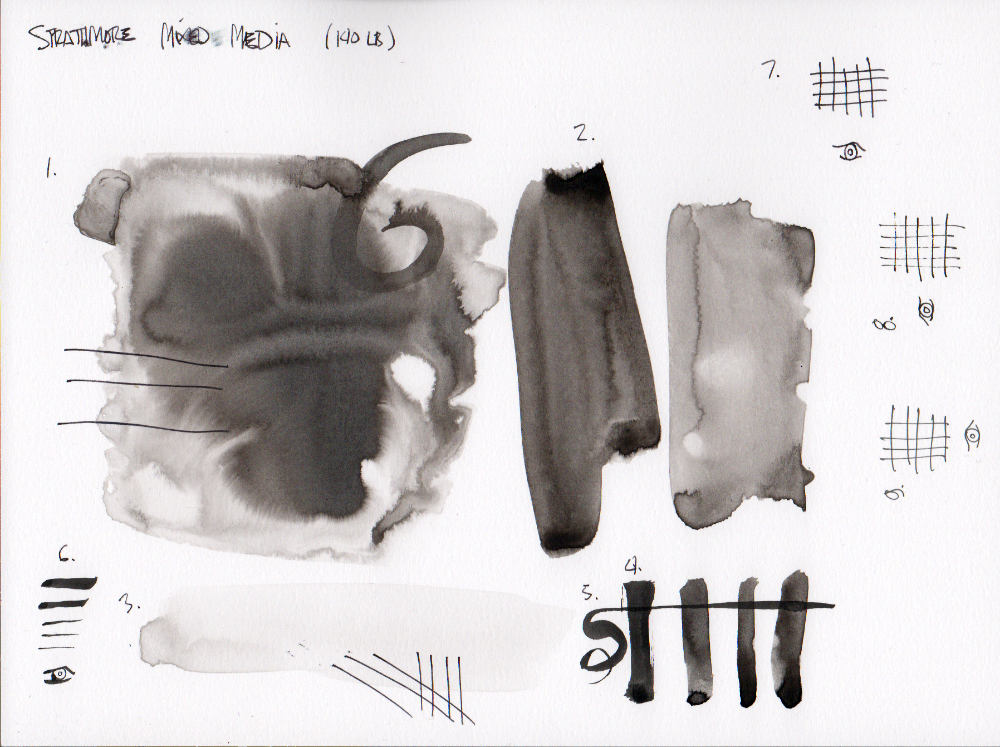 STRATHMORE MIXED MEDIA (140 LB)
7.
2.
1.
8.
9.
6.
4.
5.
3.